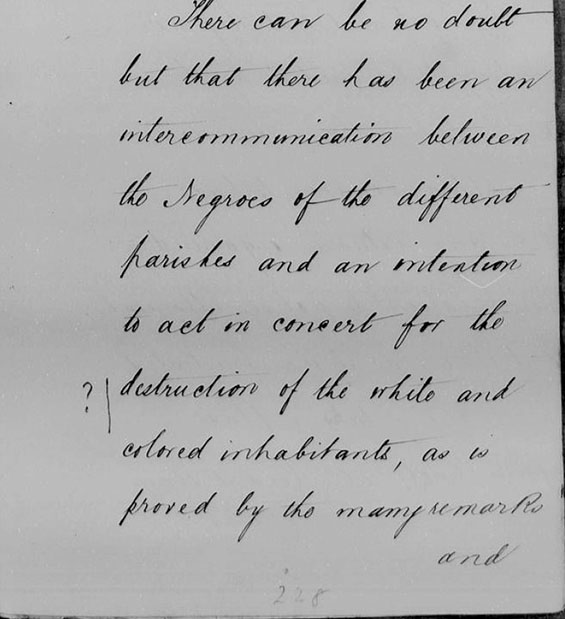 There can be no doubt
but that there has been an
intercommunication between
the Negroes of the different
parishes and an intention
to act in concert for the
?| destruction of the white and
colored inhabitants, as is
proved by the many remarks
and
228